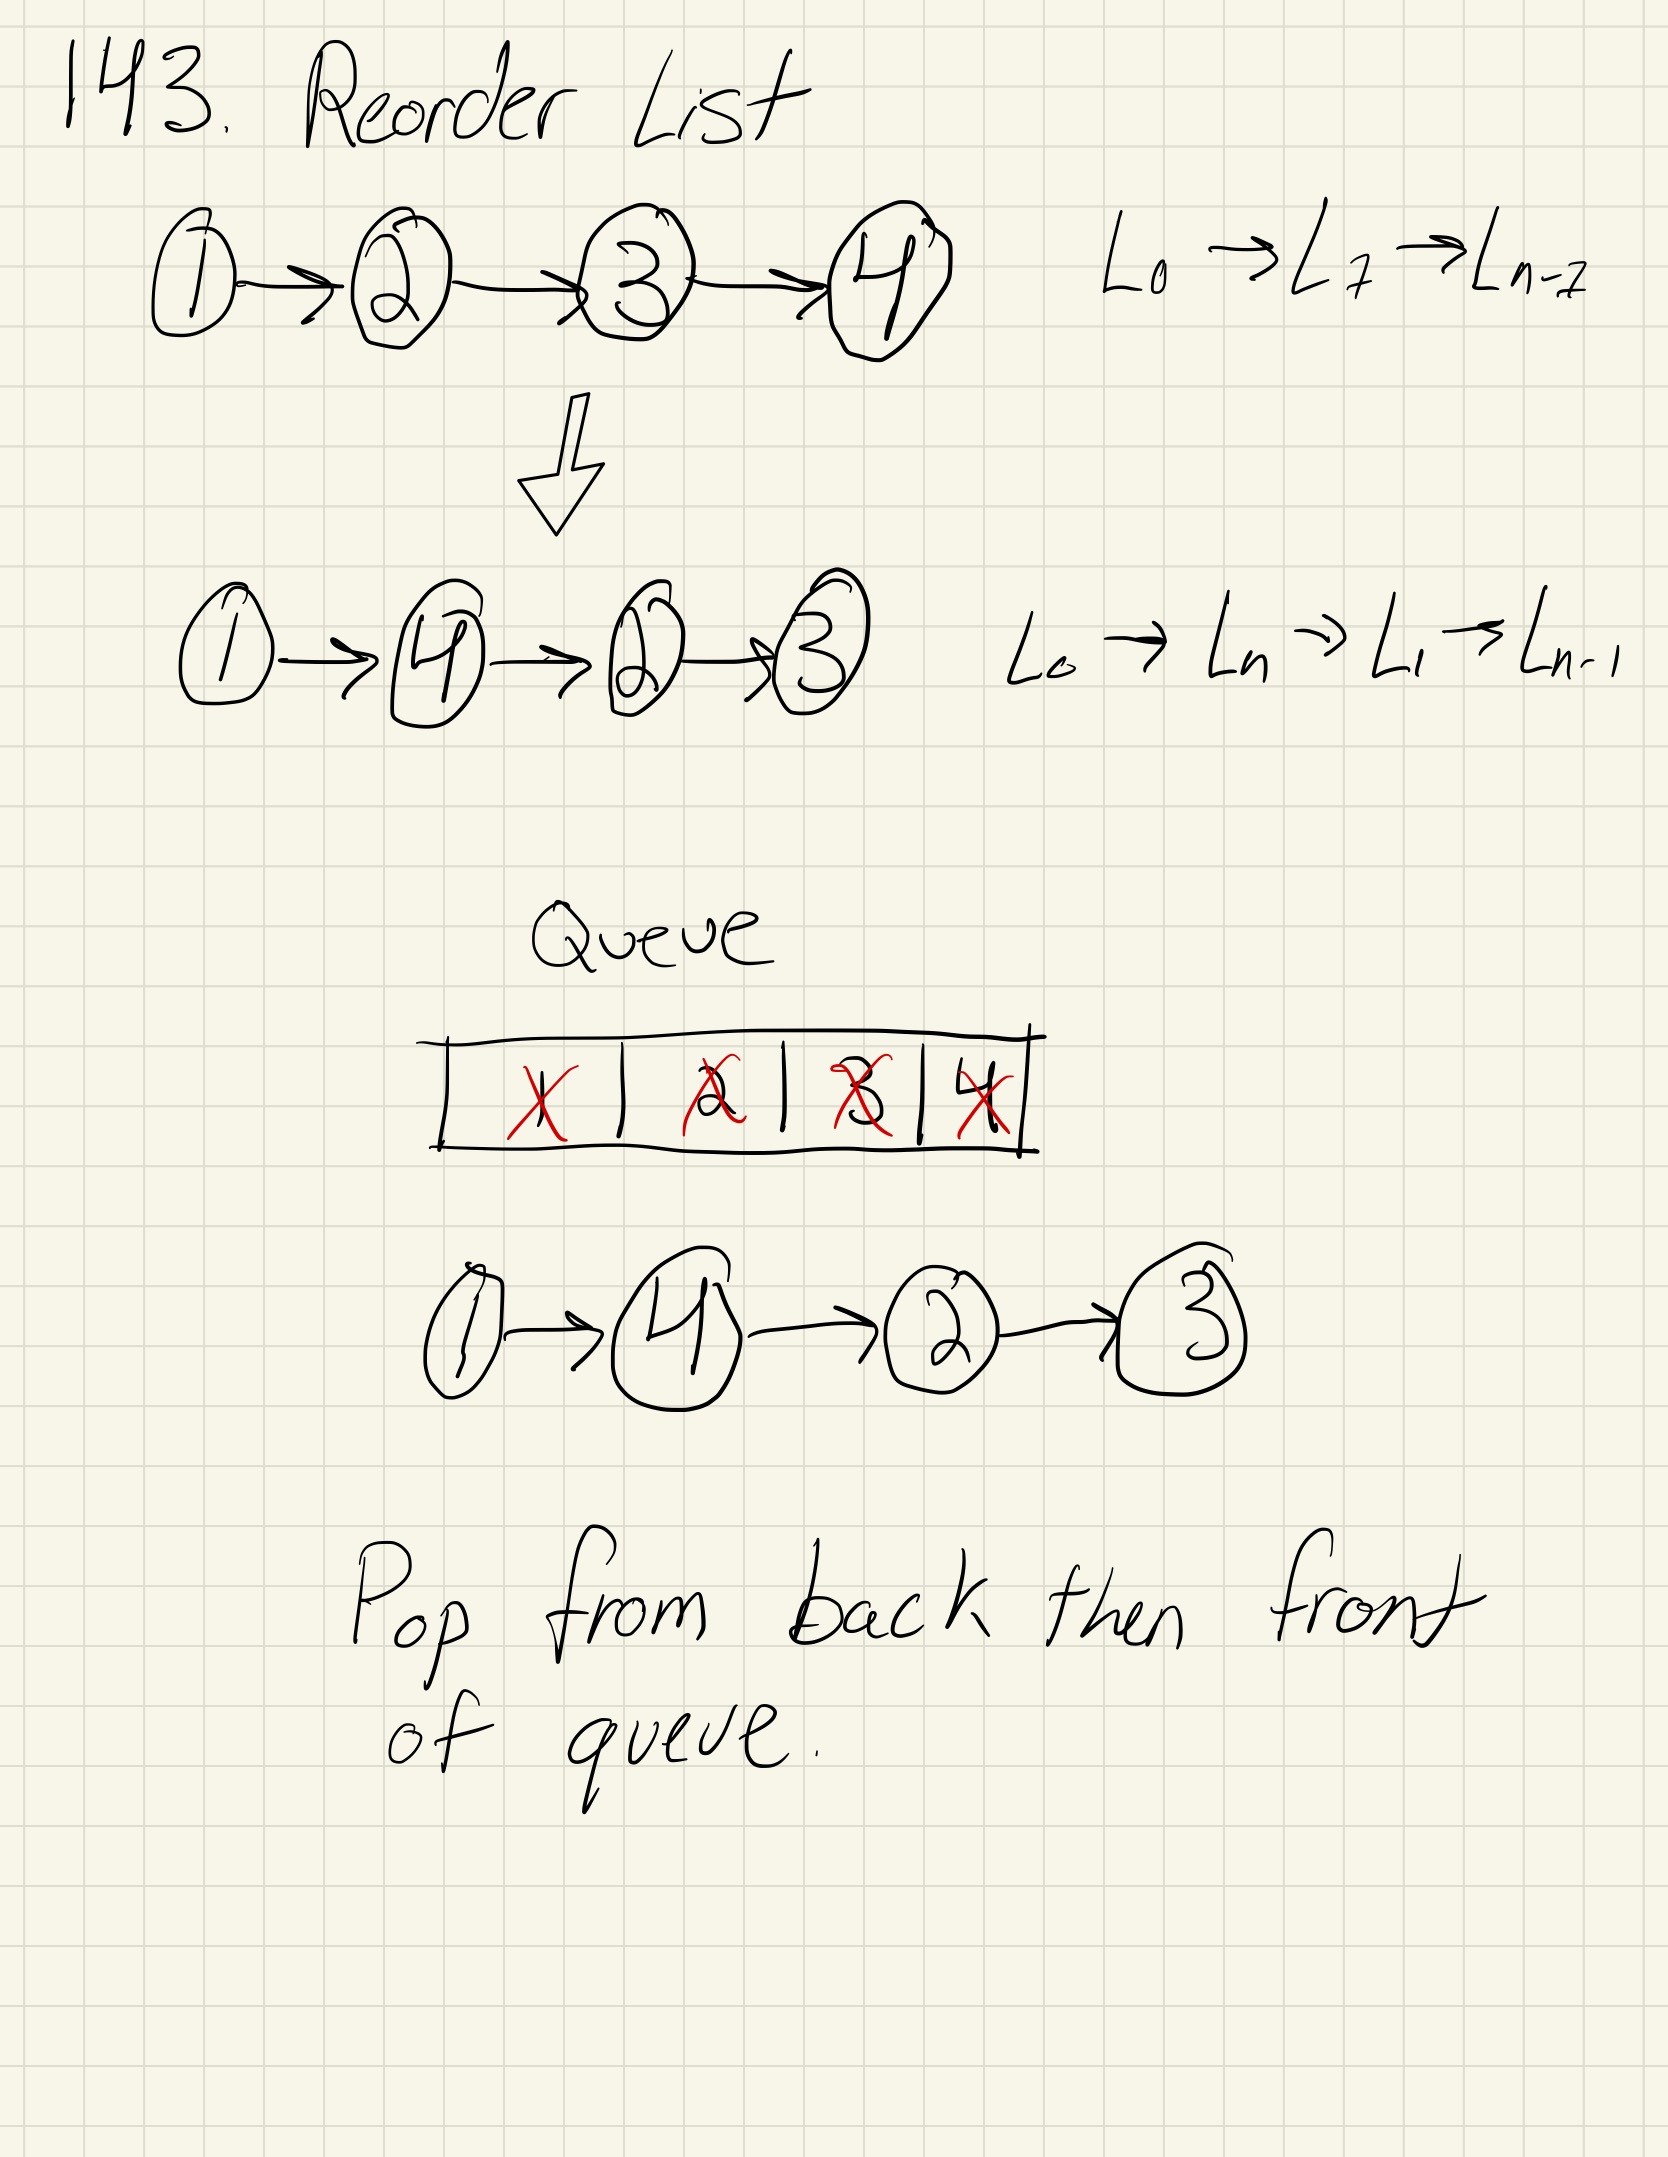 143. Reorder List
1 → 2 → 3 → 4 L0 → L1 → Ln-1
1 → 4 → 2 → 3 L0 → Ln → L1 → Ln-1
Queue
1 2 3 4
1 → 4 → 2 → 3
Pop from back then front
of queue.